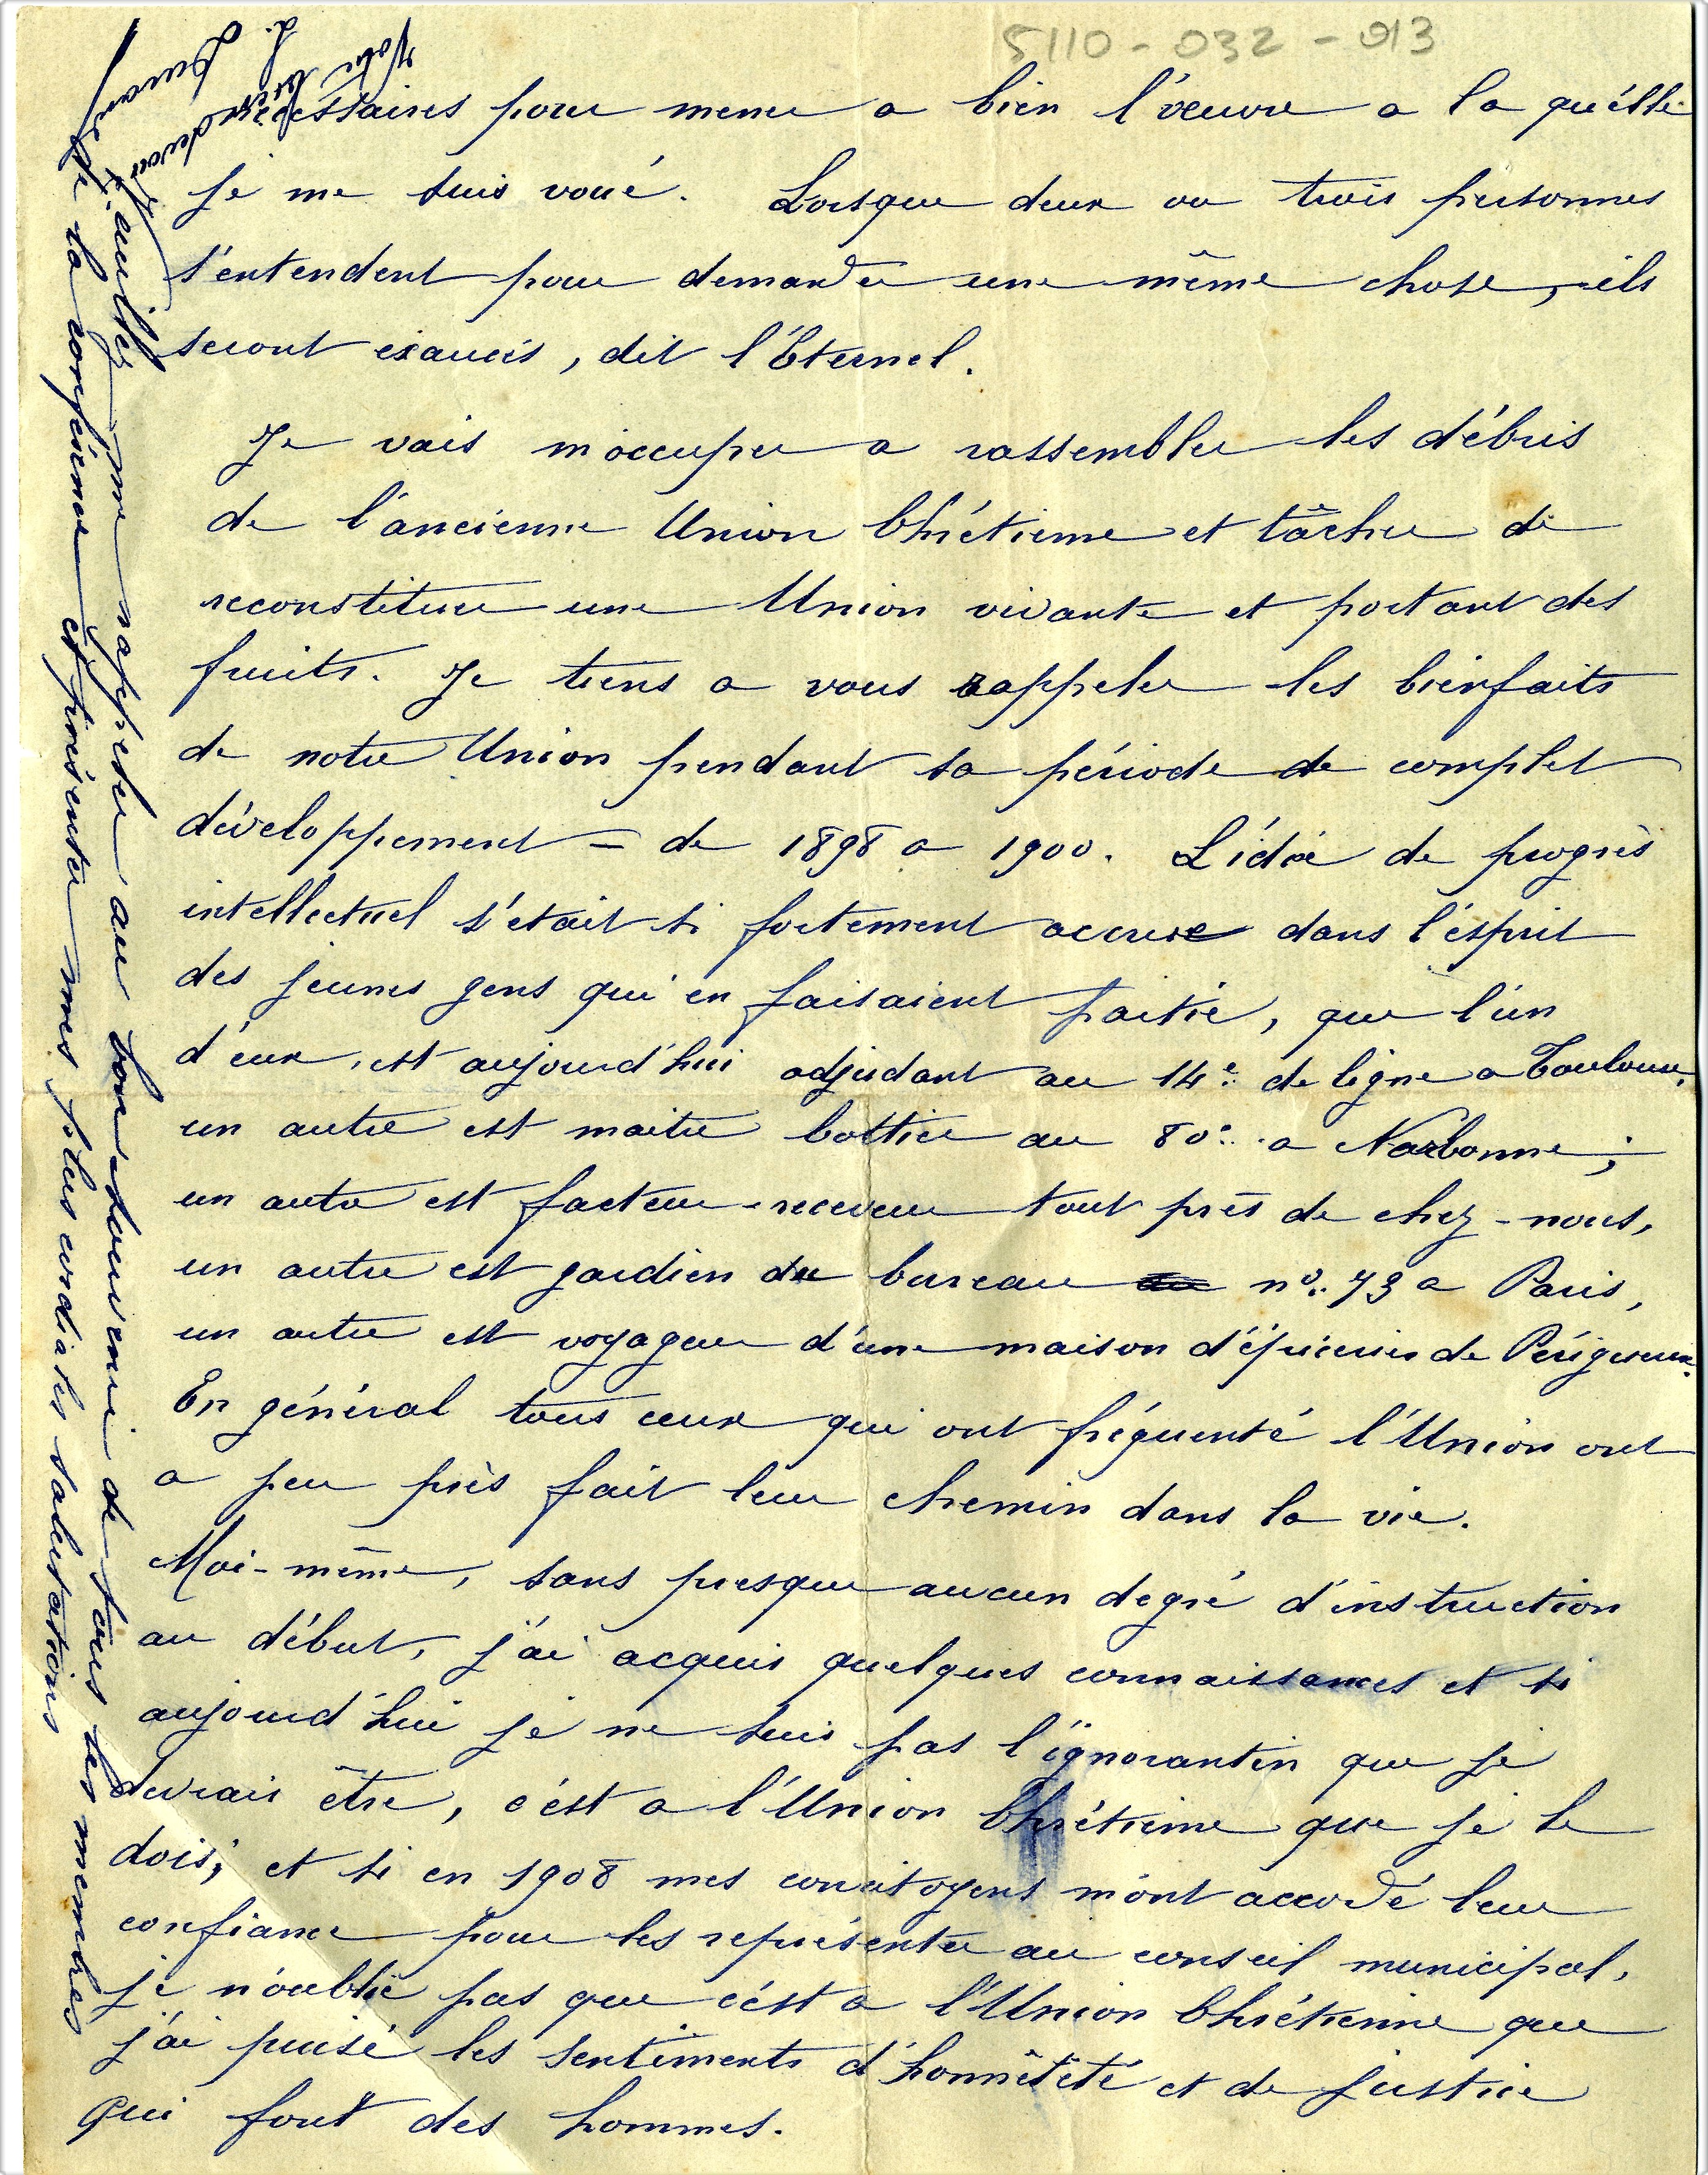 5110-032-013
nécessaires pour mener a bien l'œuvre a la qu'élle
je me suis voué. Lorsque deux ou trois personnes
s'entendent pour demander une même chose, ils
seront exaucés, dit l'Éternel.
Je vais m'occuper a rassembler les débris
de l'ancienne Union Chrétienne et tâcher de
reconstituer une Union vivante et portant des
fruits. Je tiens a vous rappeler les bienfaits
de notre Union pendant sa période de complet
développement - de 1898 a 1900. L'idée de progrès
intellectuel s'était si fortement accrue dans l'ésprit
des jeunes gens qui en faisaient partie, que l'un
d'eux, est aujourd'hui adjudant au 14e de ligne a Toulouse,
un autre est maitre bottier au 80e a Narbonne;
un autre est facteur-receveur tout près de chez-nous,
un autre est gardien du bureau no 73 a Paris,
un autre est voyageur d'une maison d'épiceries de Périgueux.
En général tous ceux qui ont fréquenté l'Union ont
a peu près fait leur chemin dans la vie.
Moi-même, sans presque aucun degré d'instruction
au début, j'ai acquis quelques connaissances et si
aujourd'hui je ne suis pas l'ignorantin que je
devrais être, c'est a l'Union Chrétienne que je le
dois; et si en 1908 mes concitoyens m'ont accordé leur
confiance pour les représenter au conseil municipal,
je n'oublie pas que c'ést a l'Union Chrétienne que
j'ai puisé les sentiments d'honnêteté et de justice
qui font des hommes.
Veuillez me rappeler au bon souvenir de tous les membres
de la conférence et présenter mes plus cordiales salutations
Votre bien dévoué